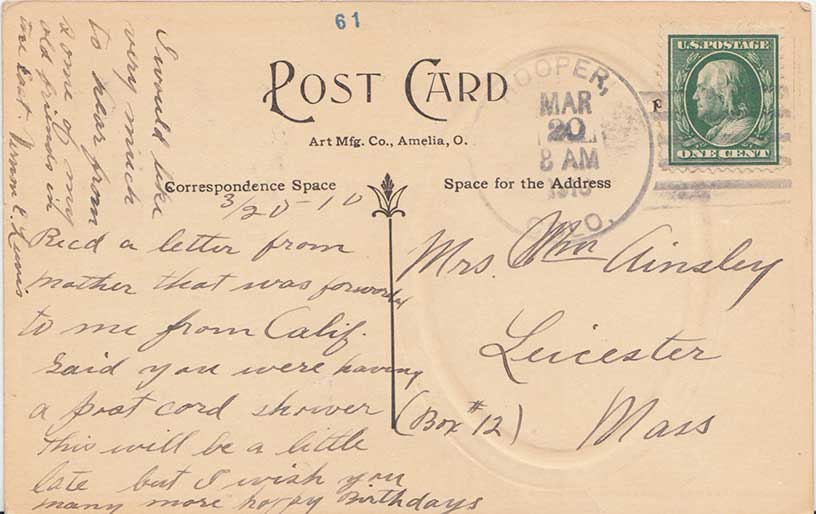 61
POST CARD
Art Mfg. Co., Amelia, O.
Correspondence Space
Space for the Address
U.S. POSTAGE
ONE CENT
HOOPER,
MAR
20
8 AM
1910
COLO.
3/20-10
Recd a letter from
mother that was forwarded
to me from Calif.
Said you were having
a post card shower
This will be a little
late but I wish you
many more happy Birthdays
I would like
very much
to hear from
some of my
old friends in
the East. Vernon E. Lewis
Mrs. Wm Ainsley
Leicester
(Box #12) Mass